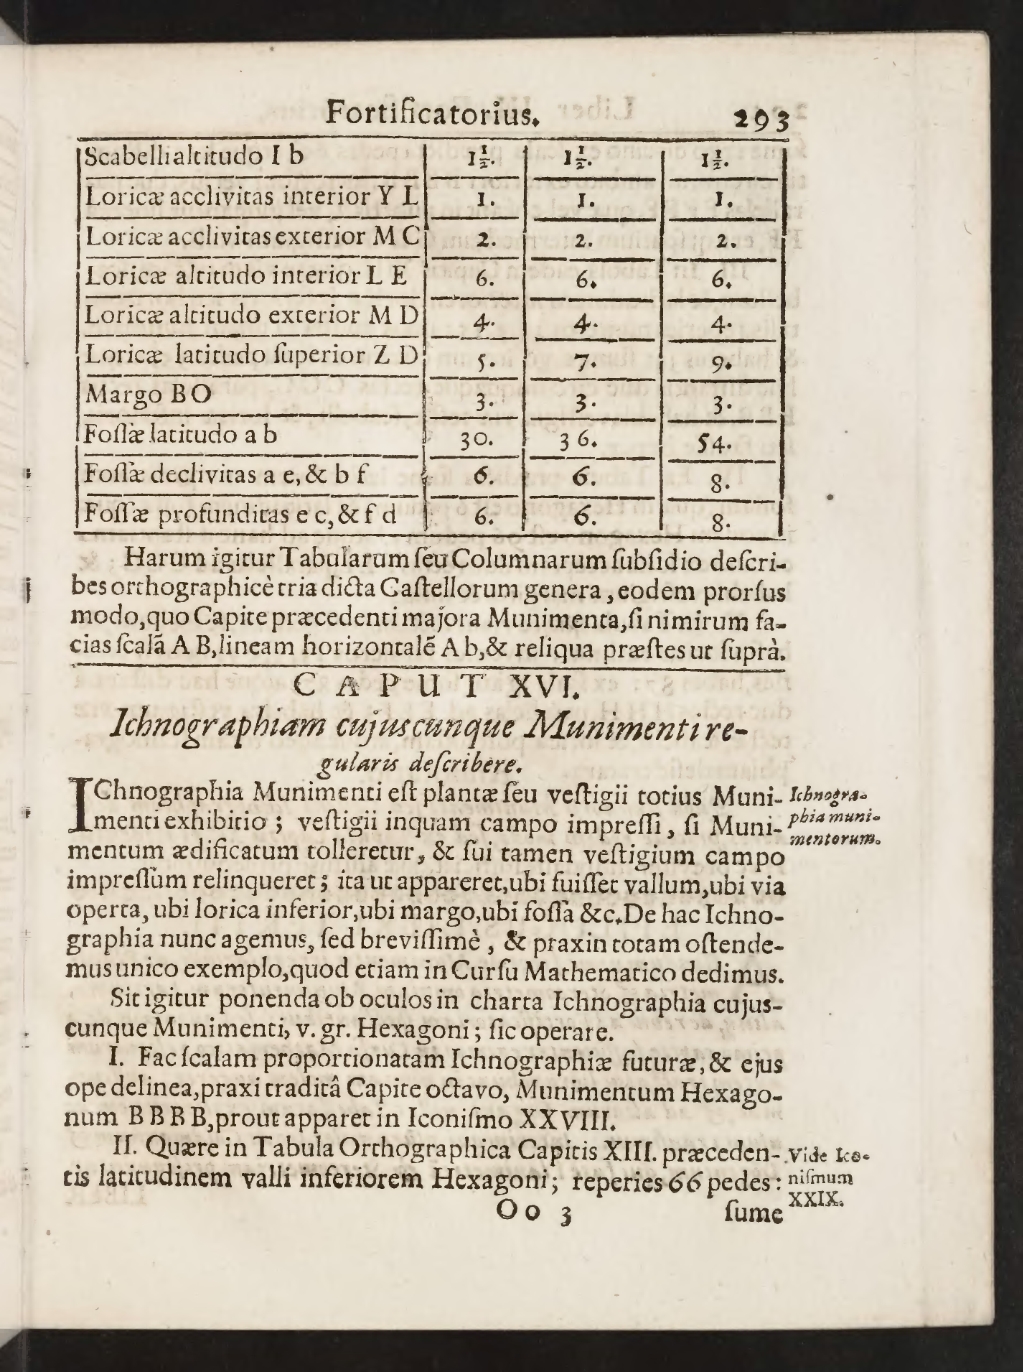 Fortificatorius. 293
Scabelli altitudo I b 1½. 1½. 1½.
Loricæ acclivitas interior Y L 1. 1. 1.
Loricæ acclivitas exterior M C 2. 2. 2.
Loricæ altitudo interior L E 6. 6. 6.
Loricæ altitudo exterior M D 4. 4. 4.
Loricæ latitudo ſuperior Z D 5. 7. 9.
Margo B O 3. 3. 3.
Foſſæ latitudo a b 30. 36. 54.
Foſſæ declivitas a e, & b f 6. 6. 8.
Foſſæ profunditas e c, & f d 6. 6. 8.
Harum igitur Tabularum ſeu Columnarum ſubſidio deſcri-
bes orthographicè tria dicta Caſtellorum genera, eodem prorſus
modo, quo Capite præcedenti majora Munimenta, ſi nimirum fa-
cias ſcalã A B, lineam horizontalẽ A b, & reliqua præſtes ut ſuprà.
CAPUT XVI.
Ichnographiam cujuscunque Munimenti re-
gularis deſcribere.
IChnographia Munimenti eſt plantæ ſeu veſtigii totius Muni-
menti exhibitio; veſtigii inquam campo impreſſi, ſi Muni-
mentum ædificatum tolleretur, & ſui tamen veſtigium campo
impreſſum relinqueret; ita ut appareret, ubi fuiſſet vallum, ubi via
operta, ubi lorica inferior, ubi margo, ubi foſſa &c. De hac Ichno-
graphia nunc agemus, ſed breviſſimè, & praxin totam oſtende-
mus unico exemplo, quod etiam in Curſu Mathematico dedimus.
Ichnogra-
phia muni-
mentorum.
Sit igitur ponenda ob oculos in charta Ichnographia cujus-
cunque Munimenti, v. gr. Hexagoni; ſic operare.
I. Fac ſcalam proportionatam Ichnographiæ futuræ, & ejus
ope delinea, praxi traditâ Capite octavo, Munimentum Hexago-
num B B B B, prout apparet in Iconiſmo XXVIII.
II. Quære in Tabula Orthographica Capitis XIII. præceden-
tis latitudinem valli inferiorem Hexagoni; reperies 66 pedes:
Vide Ico-
niſmum
XXIX.
Oo 3 ſume